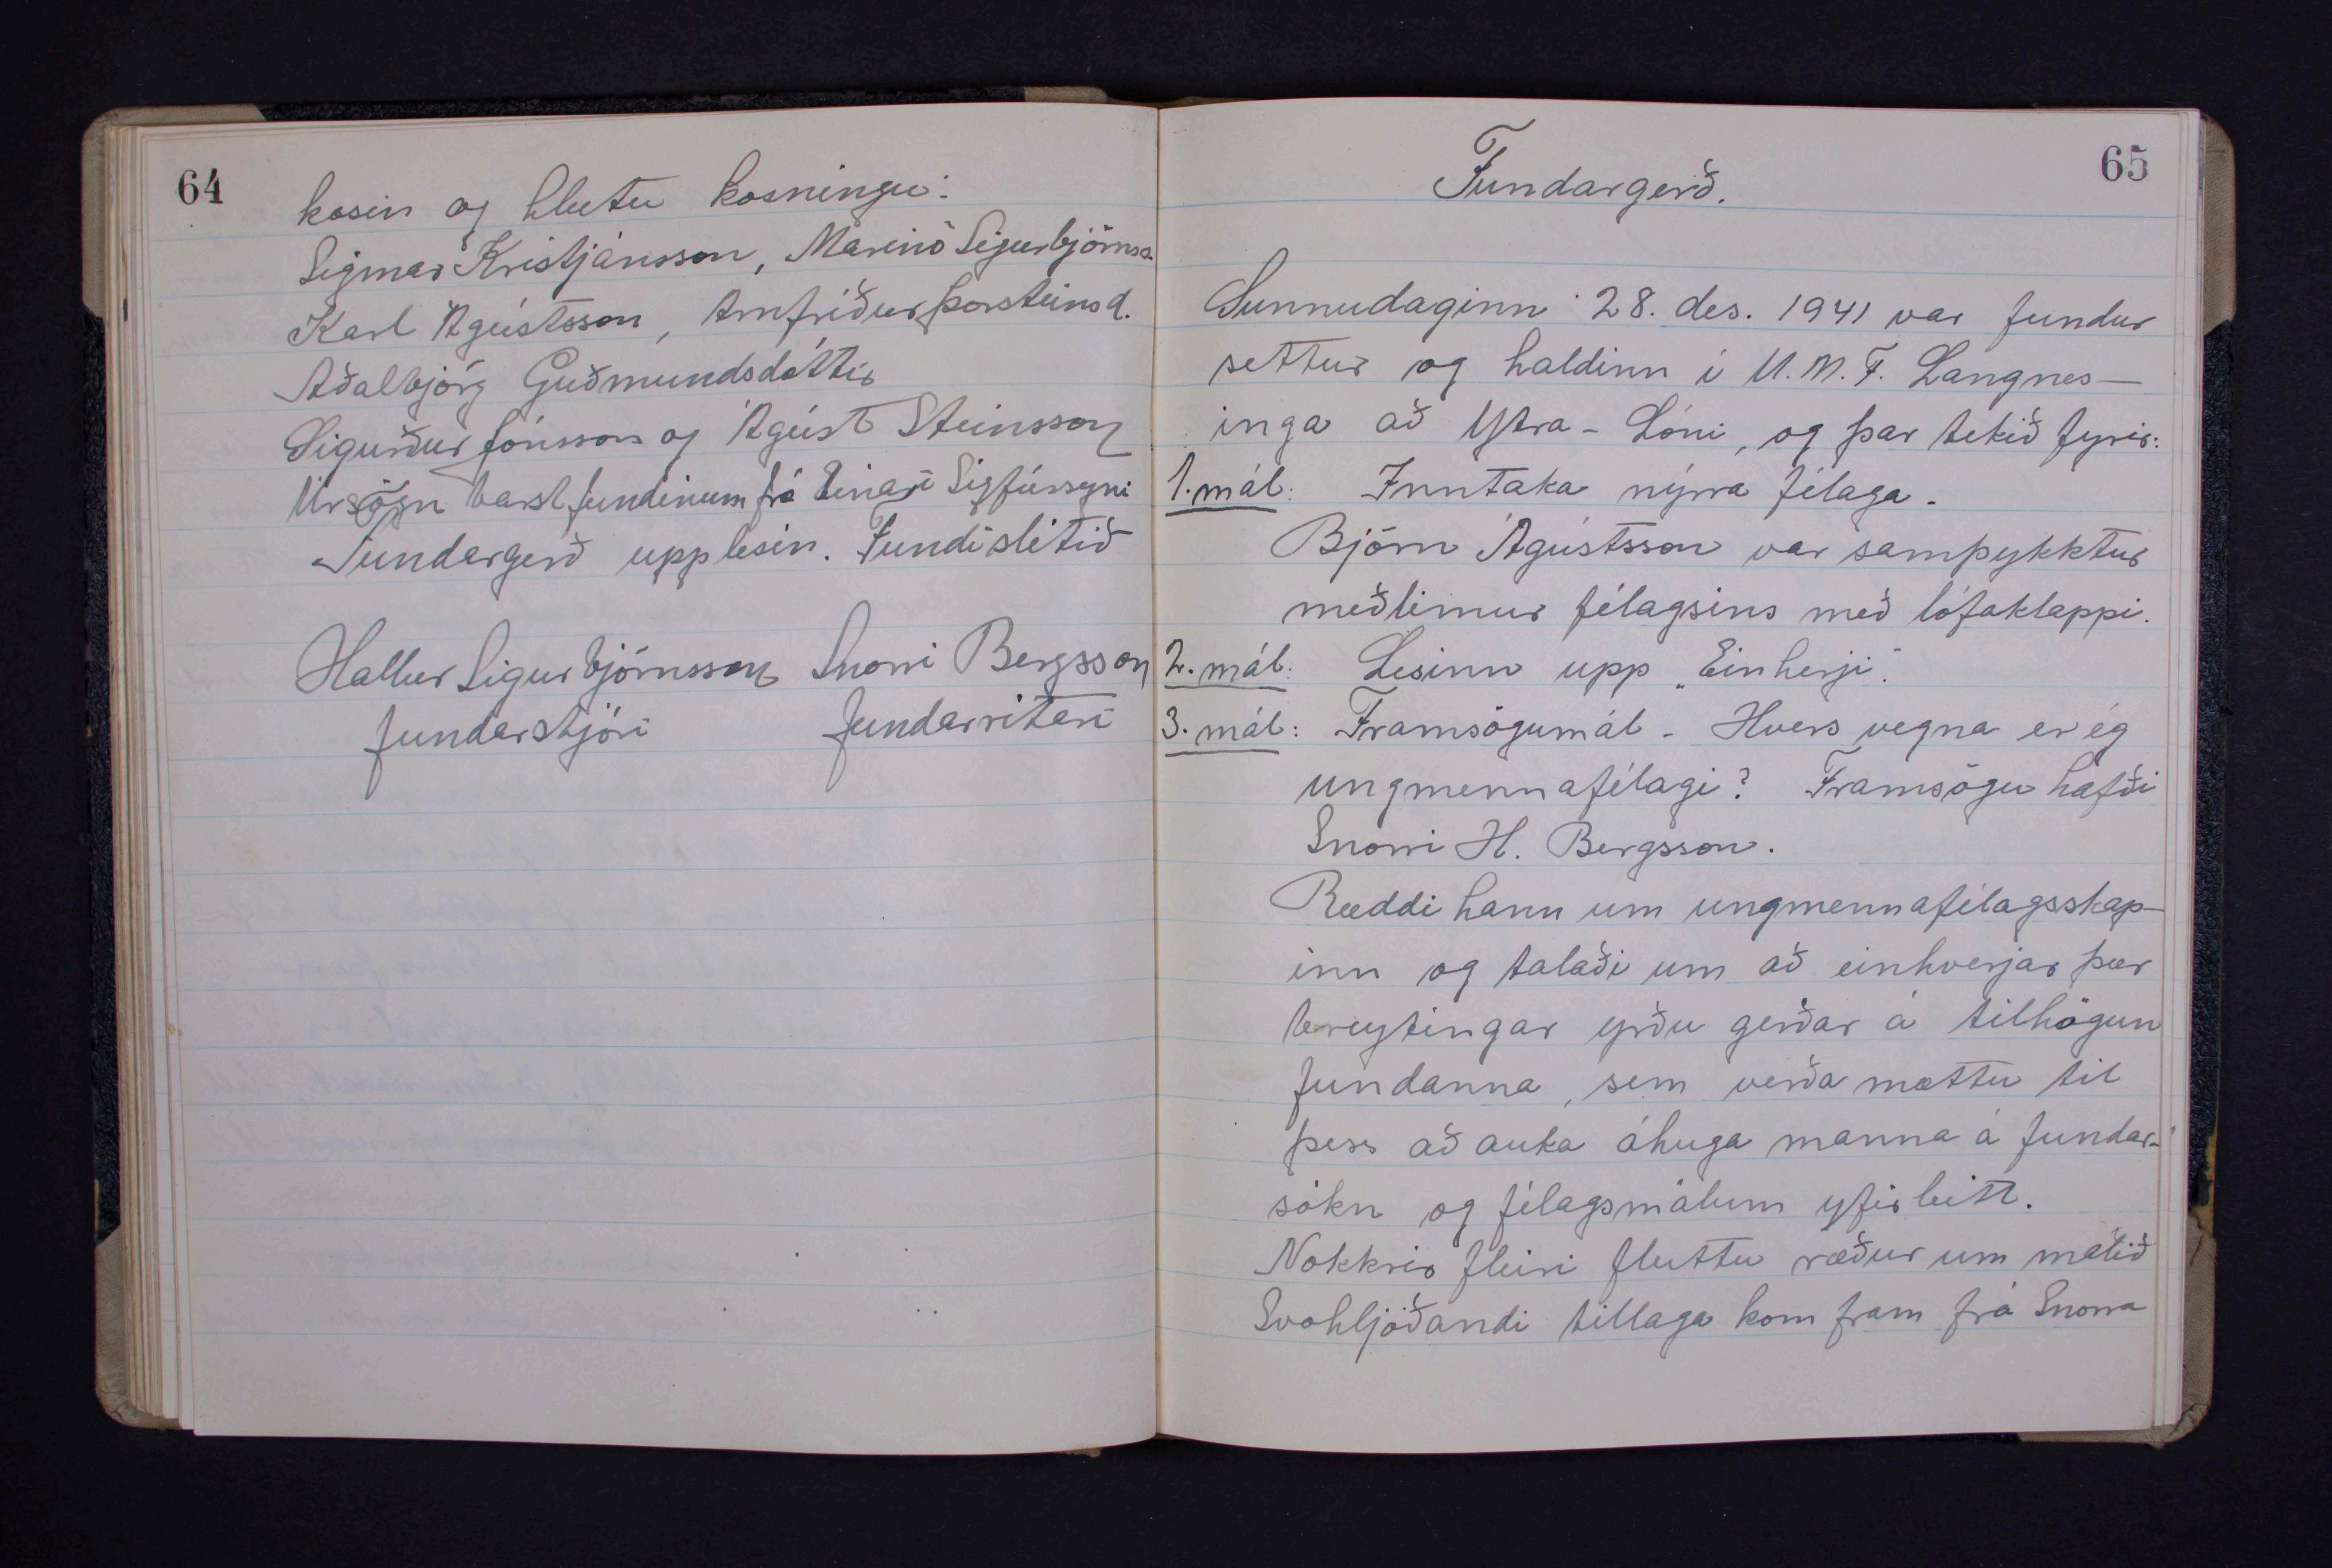 64
kosin og hlutu kosningu:
Sigmar Kristjánsson, Marinó Sigurbjörnss.
Karl Ágústsson, Arnfríður Þorsteinsd.
Aðalbjörg Guðmundsdóttir
Sigurður Jónsson og Ágúst Steinsson
Úrsögn barst fundinum frá Einari Sigfússyni
Fundargerð upplesin. Fundi slitið
Hallur Sigurbjörnsson Snorri Bergsson
fundarstjóri fundarritari
65
Fundargerð.
Sunnudaginn 28. des. 1941 var fundur
settur og haldinn í U.M.F. Langnes-
inga að Ytra-Lóni, og þar tekið fyrir:
1. mál: Inntaka nýrra félaga.
Björn Ágústsson var samþykktur
meðlimur félagsins með lófaklappi.
2. mál: Lesinn upp „Einherji".
3. mál: Framsögumál - Hvers vegna er ég
ungmennafélagi? Framsögu hafði
Snorri H. Bergsson.
Ræddi hann um ungmennafélagsskap-
inn og talaði um að einhverjar þær
breytingar yrðu gerðar á tilhögun
fundanna, sem verða mættu til
þess að auka áhuga manna á fundar-
sókn og félagsmálum yfirleitt.
Nokkrir fleiri fluttu ræður um málið
Svohljóðandi tillaga kom fram frá Snorra